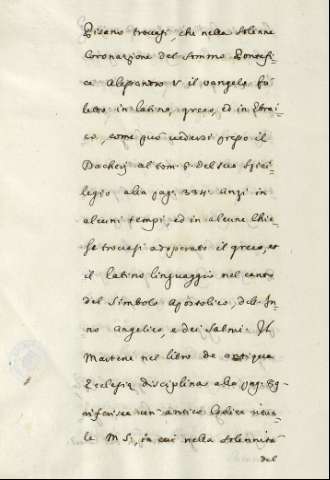 Pisano trovasi, che nella solenne
Coronazione del sommo Pontefi-
ce Alessandro V il vangelo fù
letto in latino, greco, ed in Ebrai-
co, come può vedersi presso il
Dachery al tom. 6 del suo Spici-
legio alla pag. 334. Anzi in
alcuni tempi, ed in alcune Chie-
se trovasi adoperato il greco, et
il latino linguaggio nel canto
del Simbolo Apostolico, dell' In-
no Angelico, e dei Salmi. Il
Martene nel libro de antiqua
Ecclesiæ disciplina alla pag. 89
riferisce un' antico Codice ritua-
le MS, in cui nella solennità
del